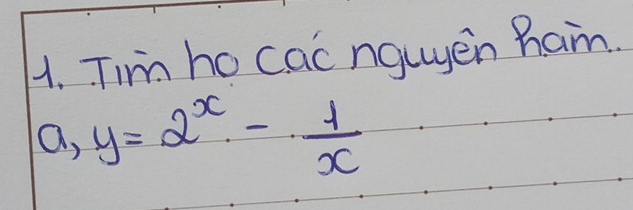 1. Tìm họ các nguyên hàm.
a, y = 2^x - 1/x